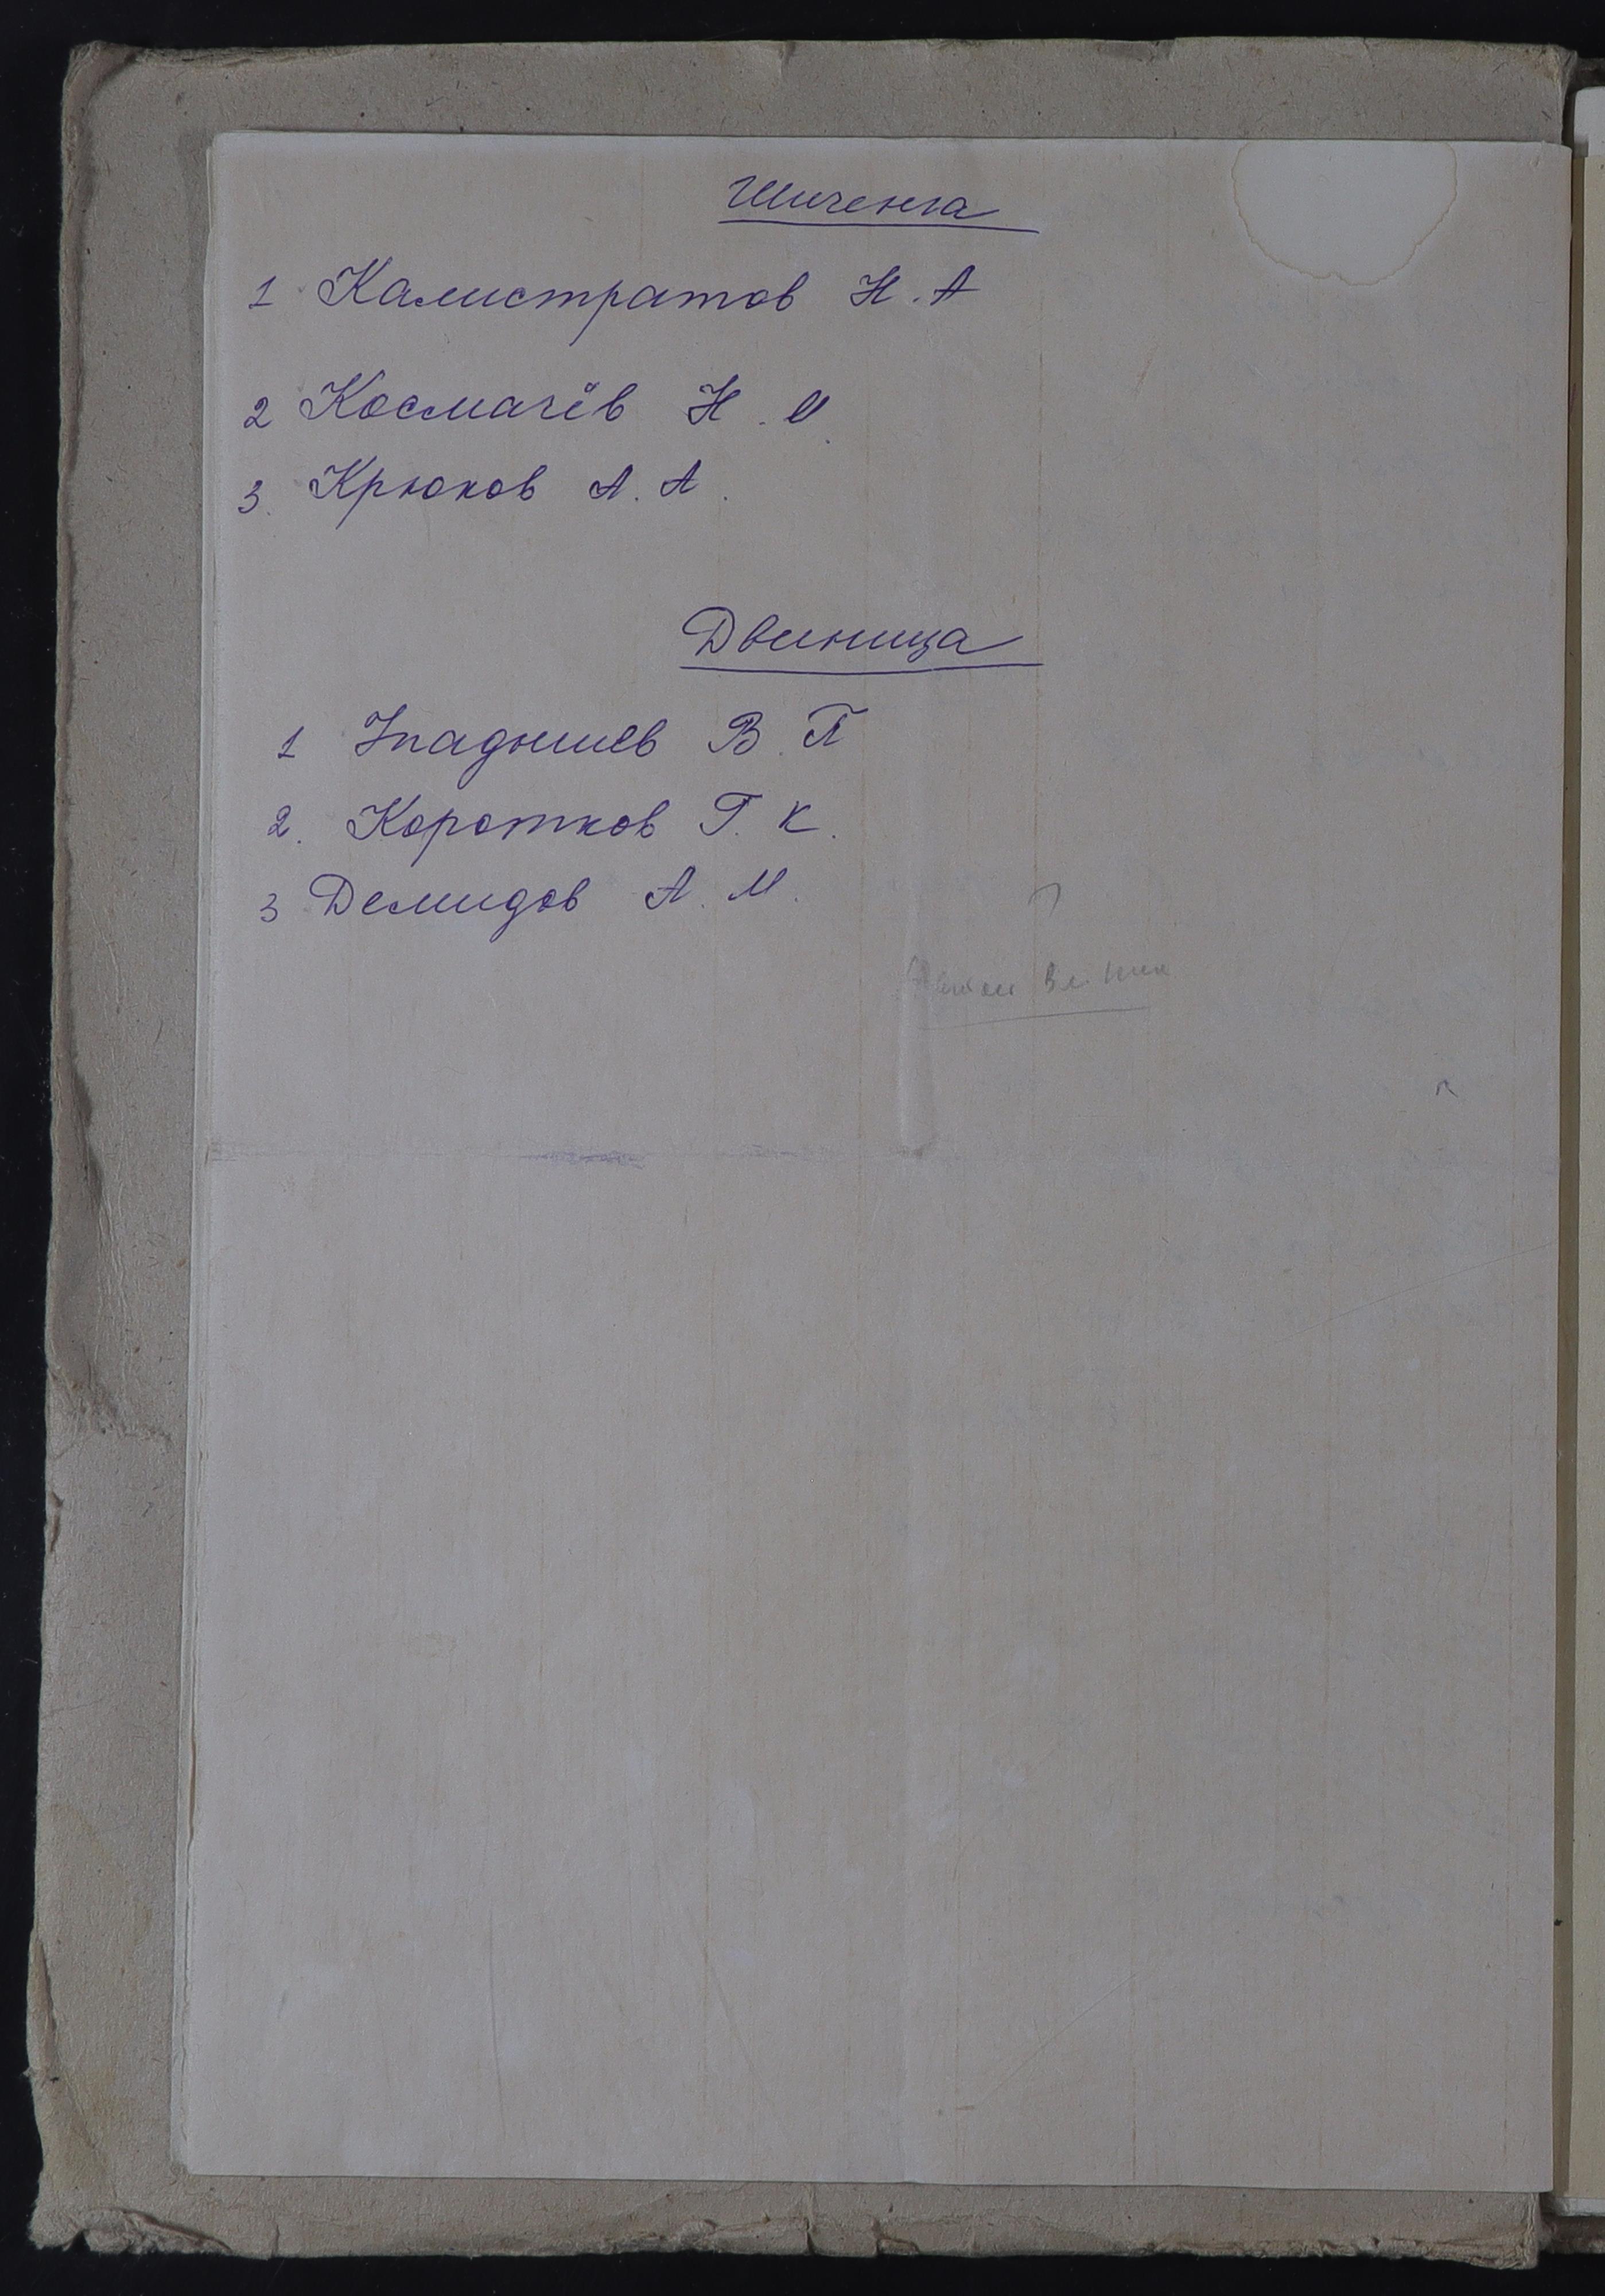 Шиченга
1 Калистратов Н. А
2 Космачёв Н. И.
3. Крюков А. А.
Двиница
1 Упадышев В. П
2. Коротков Г. К.
3 Демидов А. М.